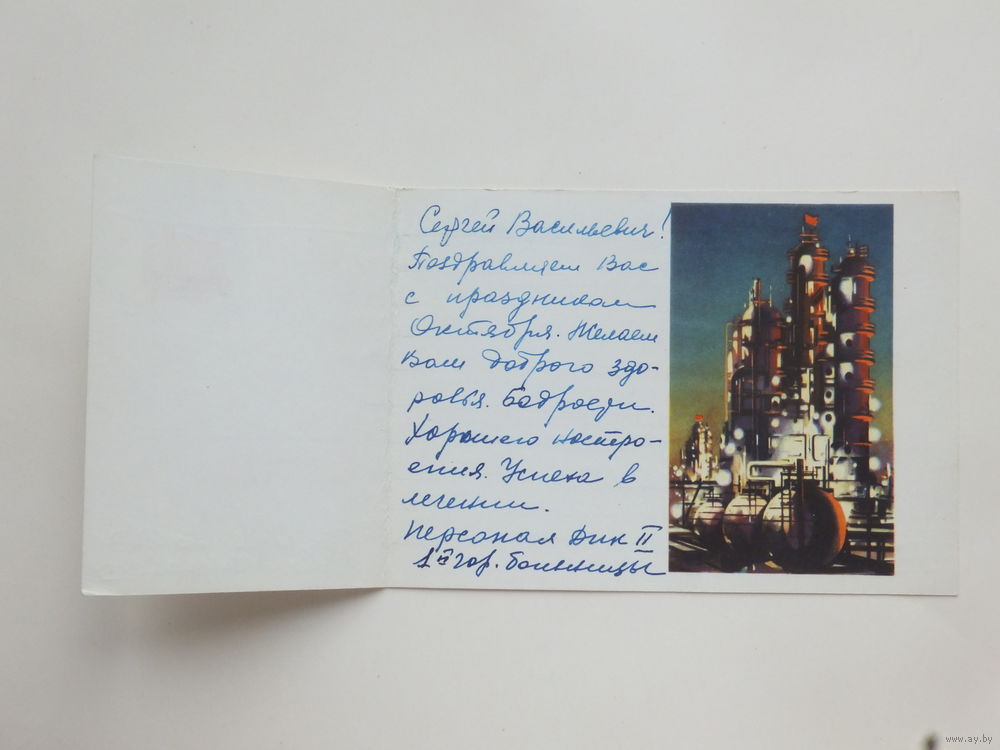 Сергей Васильевич!
Поздравляем Вас
с праздником
Октября. Желаем
Вам доброго здо-
ровья. Бодрости.
Хорошего настро-
ения. Успеха в
лечении.
Персонал II
1й гор. больницы
www.ay.by